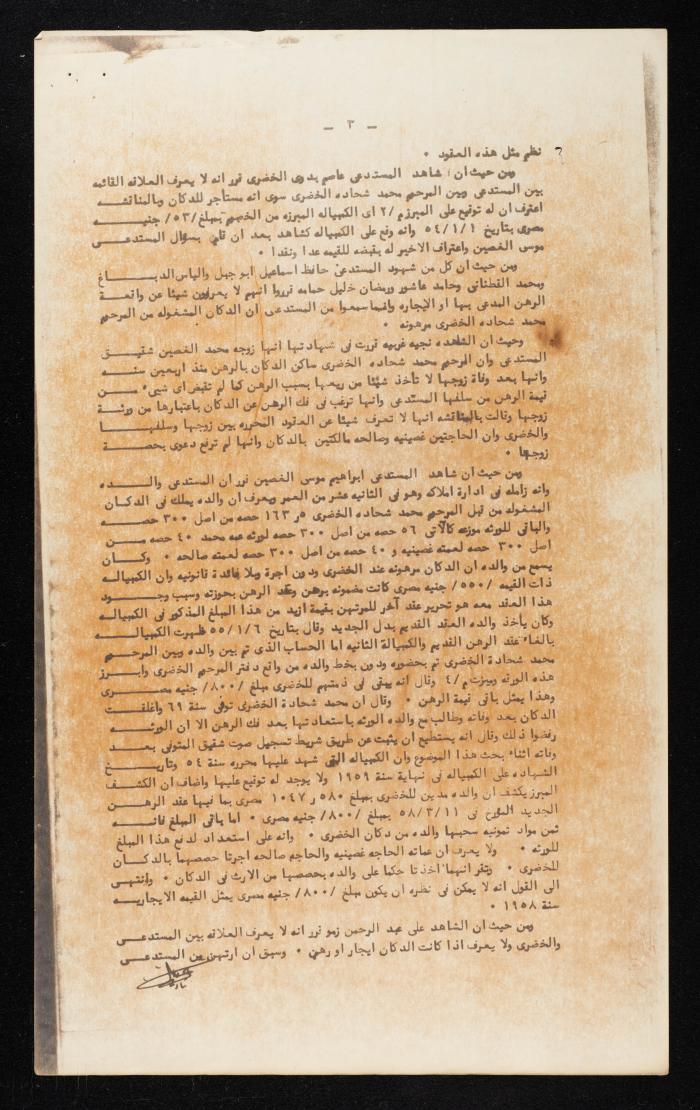 — ٣ —
نظم مثل هذه العقود ٠
ومن حيث ان شاهد المستدعى عاصم بدوى الخضرى قرر انه لا يعرف العلاقه القائمه
بين المستدعى وبين المرحوم محمد شحاده الخضرى سوى انه مستأجر للدكان وبالمناقشه
اعترف ان له توقيع على المبرز م/٢ اى الكمبياله المبرزه من الخصم بمبلغ /٥٣/ جنيه
مصرى بتاريخ ٥٤/١/١ وانه وقع على الكمبياله كشاهد بعد ان قام بسؤال المستدعى
موسى الغصين واعتراف الاخير له بقبضه للقيمه عدا ونقدا ٠
ومن حيث ان كل من شهود المستدعى حافظ اسماعيل ابو جبل والياس الدباغ
ومحمد القطنانى وحامد عاشور ورمضان خليل حمامه قرروا انهم لا يعرفون شيئا عن واقعة
الرهن المدعى بها او الايجاره وانما سمعوا من المستدعى ان الدكان المشغوله من المرحوم
محمد شحاده الخضرى مرهونه ٠
وحيث ان الشاهده نجيه غربيه قررت فى شهادتها انها زوجه محمد الغصين شقيق
المستدعى وان المرحوم محمد شحاده الخضرى ساكن الدكان بالرهن منذ اربعين سنه
وانها بعد وفاة زوجها لا تأخذ شيئا من ريعها بسبب الرهن كما لم تقبض اى شيىء من
قيمة الرهن من سلفها المستدعى وانها ترغب فى فك الرهن عن الدكان باعتبارها من ورثة
زوجها وقالت بالمناقشه انها لا تعرف شيئا عن العقود المحرره بين زوجها وسلفها
والخضرى وان الحاجتين غصينيه وصالحه مالكتين بالدكان وانها لم ترفع دعوى بحصة
زوجها ٠
ومن حيث ان شاهد المستدعى ابراهيم موسى الغصين قرر ان المستدعى والده
وانه زامله فى ادارة املاكه وهو فى الثانيه عشر من العمر ويعرف ان والده يملك فى الدكان
المشغوله من قبل المرحوم محمد شحاده الخضرى ٥ر١٦٣ حصه من اصل ٣٠٠ حصه
والباقى للورثه موزعه كالآتى ٥٦ حصه من اصل ٣٠٠ حصه لورثه عمه محمد ٤٠ حصه من
اصل ٣٠٠ حصه لعمته غصينيه و ٤٠ حصه من اصل ٣٠٠ حصه لعمته صالحه ٠ وكان
يسمع من والده ان الدكان مرهونه عند الخضرى ودون اجرة وبلا فائدة قانونيه وان الكمبياله
ذات القيمه /٥٥٠/ جنيه مصرى كانت مضمونه برهن وعقد الرهن بحوزته وسبب وجود
هذا العقد معه هو تحرير عقد آخر للمرتهن بقيمة ازيد من هذا المبلغ المذكور فى الكمبياله
وكان يأخذ والده العقد القديم بدل الجديد وقال بتاريخ ٥٥/١/٦ ظهرت الكمبياله
بالغاء عقد الرهن القديم والكمبيالة الثانيه اما الحساب الذى تم بين والده وبين المرحوم
محمد شحادة الخضرى تم بحضوره ودون بخط والده من واقع دفتر المرحوم الخضرى وابرز
هذه الورثه وميزت م/٤ وقال انه يبقى فى ذمتهم للخضرى مبلغ /٨٠٠/ جنيه مصرى
وهذا يمثل باقى قيمة الرهن ٠ وقال ان محمد شحادة الخضرى توفى سنة ٦٩ واغلقت
الدكان بعد وفاته وطالب مع والده الورثه باستعادتها بعد فك الرهن الا ان الورثه
رفضوا ذلك وقال انه يستطيع ان يثبت عن طريق شريط تسجيل صوت شقيق المتوفى بعد
وفاته اثناء بحث هذا الموضوع وان الكمبياله التى شهد عليها محرره سنة ٥٤ وتاريخ
الشهاده على الكمبياله فى نهاية سنة ١٩٥٩ ولا يوجد له توقيع عليها واضاف ان الكشف
المبرز يكشف ان والده مدين للخضرى بمبلغ ٥٨٠ر١٠٤٧ مصرى بما فيها عقد الرهن
الجديد المؤرخ فى ٥٨/٣/١١ بمبلغ /٨٠٠/ جنيه مصرى ٠ اما باقى المبلغ فانه
ثمن مواد تموينيه سحبها والده من دكان الخضرى ٠ وانه على استعداد لدفع هذا المبلغ
للورثه ٠ ولا يعرف ان عماته الحاجه غصينيه والحاجه صالحه اجرتا حصصهما بالدكان
للخضرى ٠ وتقر انهما اخذتا حكما على والده بحصصها من الارث فى الدكان ٠ وانتهى
الى القول انه لا يمكن فى نظره ان يكون مبلغ /٨٠٠/ جنيه مصرى يمثل القيمه الايجاريه
سنة ١٩٥٨ ٠
ومن حيث ان الشاهد على عبد الرحمن زمو قرر انه لا يعرف العلاقه بين المستدعى
والخضرى ولا يعرف اذا كانت الدكان ايجار او رهن ٠ وسبق ان ارتهن من المستدعى